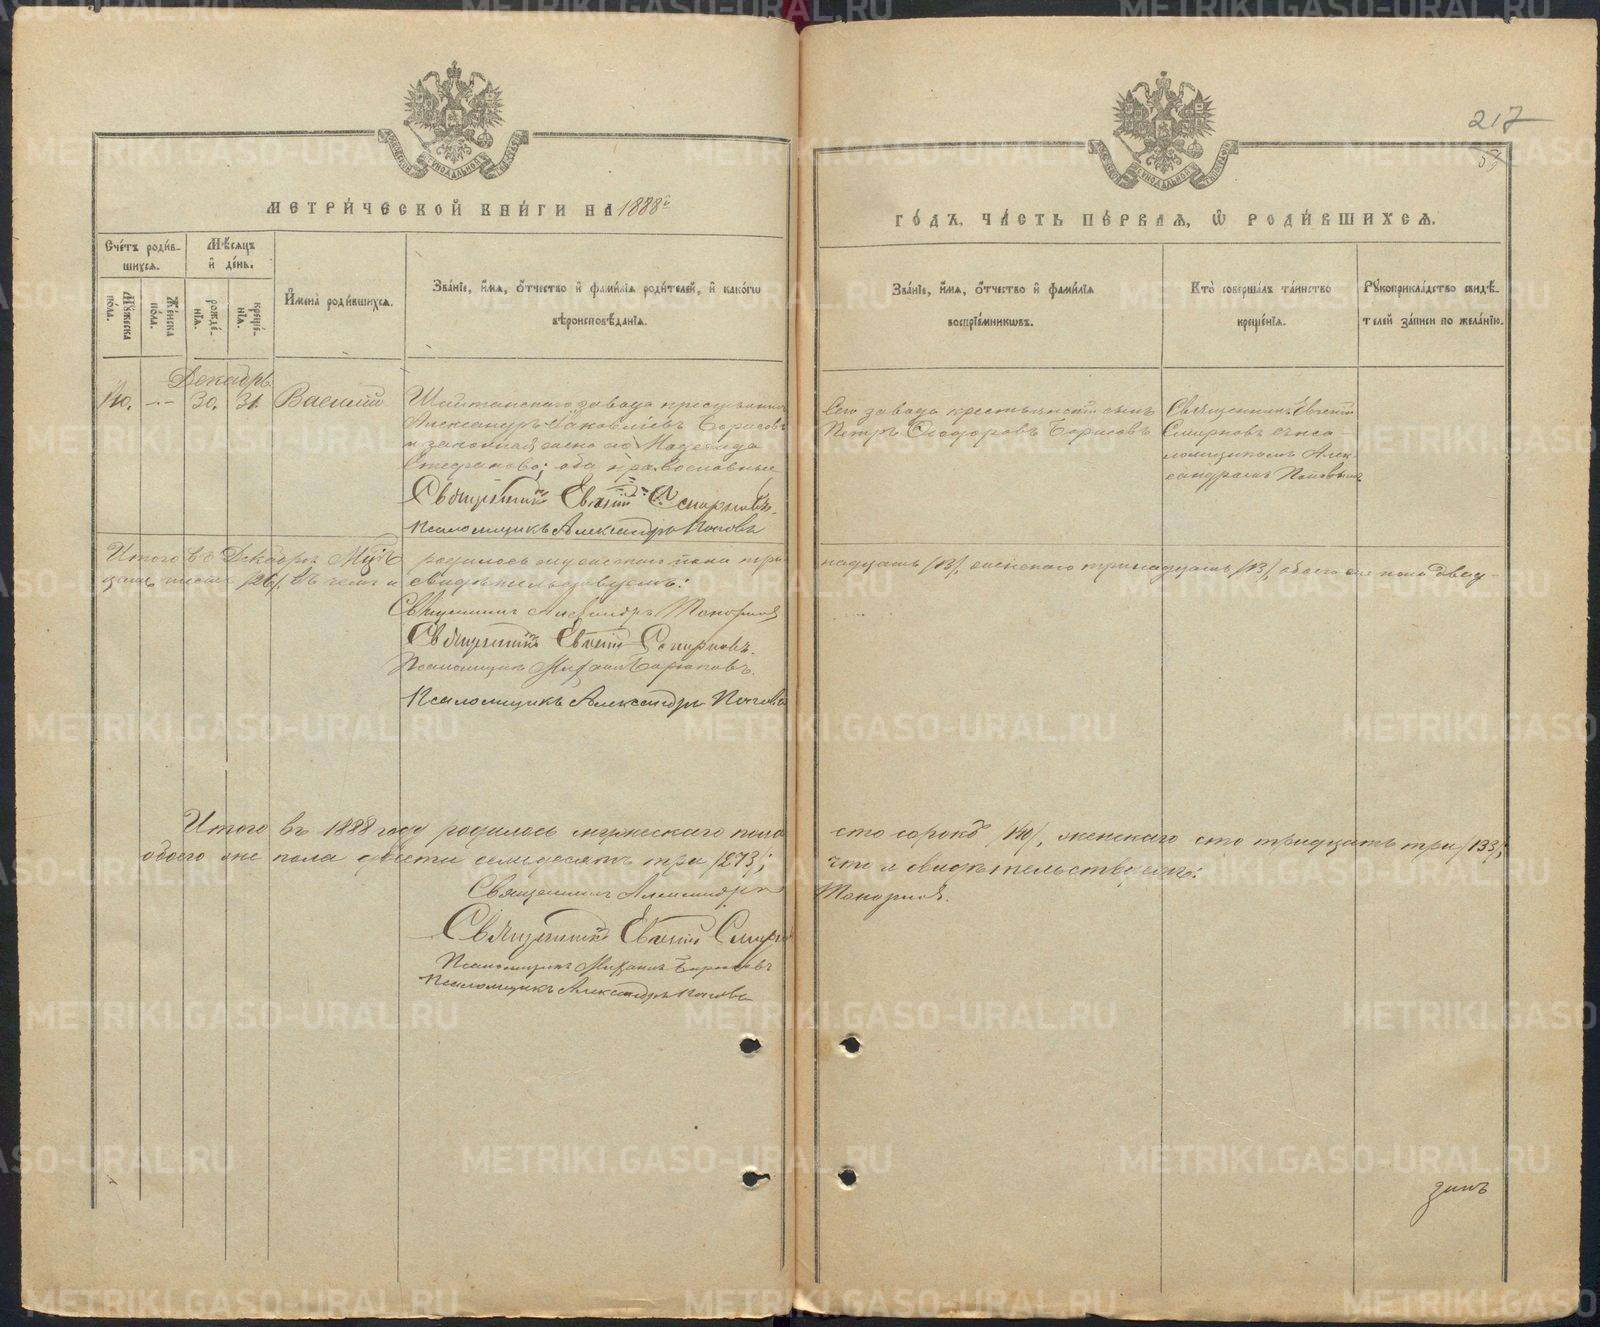 217
МЕТРИ́ЧЕСКОЙ КНИ́ГИ НА 1888й
ГО́ДЪ, ЧА́СТЬ ПЕ́РВАЯ, Ѡ РОДИ́ВШИХСЯ.
Сче́тъ роди́в-
шихся.
Мꙋжеска по́ла.
Же́нска по́ла.
Мѣ́сяцъ
и҆ де́нь.
рожде́-
нїя.
креще́-
нїя.
И҆мена̀ роди́вшихся.
Зва́нїе, и҆́мя, ѻ҆́тчество и҆ фами́лїя роди́телей, и҆ како́гѡ
вѣроисповѣ́данїя.
Зва́нїе, и҆́мя, ѻ҆́тчество и҆ фами́лїя
воспрїе́мникѡвъ.
Кто̀ соверша́лъ та́инство
креще́нїя.
Рꙋкоприкла́дство свидѣ́-
телей за́писи по жела́нїю.
Декабрь
140. — 30. 31. Василій
Шайтанскаго завода
Александръ Яковлевъ Борисовъ
и законная жена его Надежда
Стефанова; оба православные
Священникъ Евгеній Смирновъ.
Псаломщикъ Александръ Поповъ
Сего завода крестьянскій сынъ
Петръ Ѳеодоровъ Борисовъ
Священникъ Евгеній
Смирновъ съ пса-
ломщикомъ Алек-
сандромъ Поповымъ
Итого въ Декабрѣ М-цѣ родилось мужескаго пола три-
надцать /13/, женскаго тринадцать /13/, обоего же пола двад-
цать шесть /26/. Въ чемъ и свидѣтельствуемъ:
Священникъ Александръ Топорковъ
Священникъ Евгеній Смирновъ.
Псаломщикъ Михаилъ
Псаломщикъ Александръ Поповъ
Итого въ 1888 году родилось мужескаго пола сто сорокъ /140/, женскаго сто тридцать три /133/,
обоего же пола двѣсти семьдесятъ три /273/; что и свидѣтельствуемъ:
Священникъ Александръ
Священникъ Евгеній Смирновъ
Псаломщикъ Михаилъ
Псаломщикъ Александръ Поповъ
METRIKI.GASO-URAL.RU